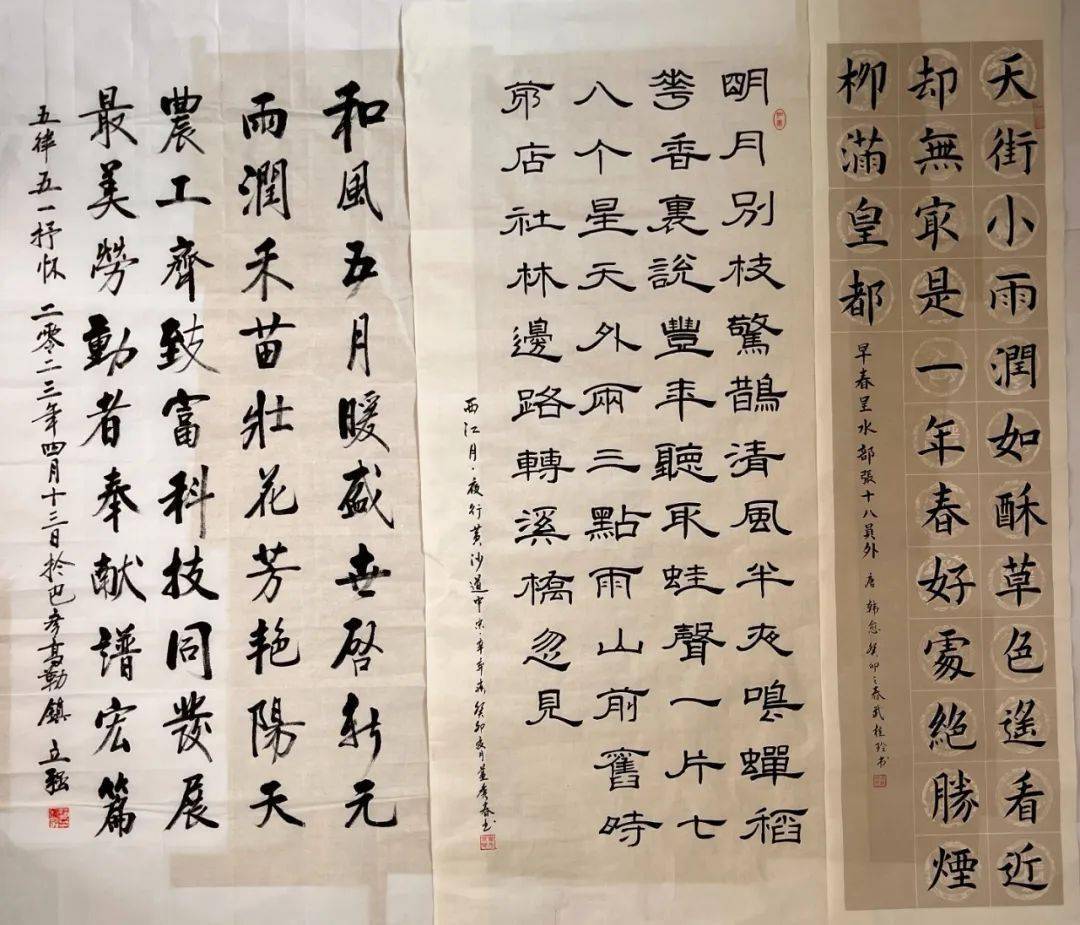 天街小雨潤如酥草色遙看近
却無冣是一年春好處絕勝煙
柳滿皇都
早春呈水部張十八員外 唐 韓愈 癸卯之春武桂玲书
明月別枝驚鵲清風半夜鳴蟬稻
華香裏說豐年聽取蛙聲一片七
八个星天外兩三點雨山前舊時
茅店社林邊路轉溪橋忽見
西江月·夜行黄沙道中 宋·辛弃疾 癸卯 月董 春书
和風五月暖盛世啓新元
雨潤禾苗壯花芳艳陽天
農工齊致富科技同發展
最美勞動者奉献譜宏篇
五律五一抒怀 二零二三年四月十三日於巴彦高勒鎮 立强